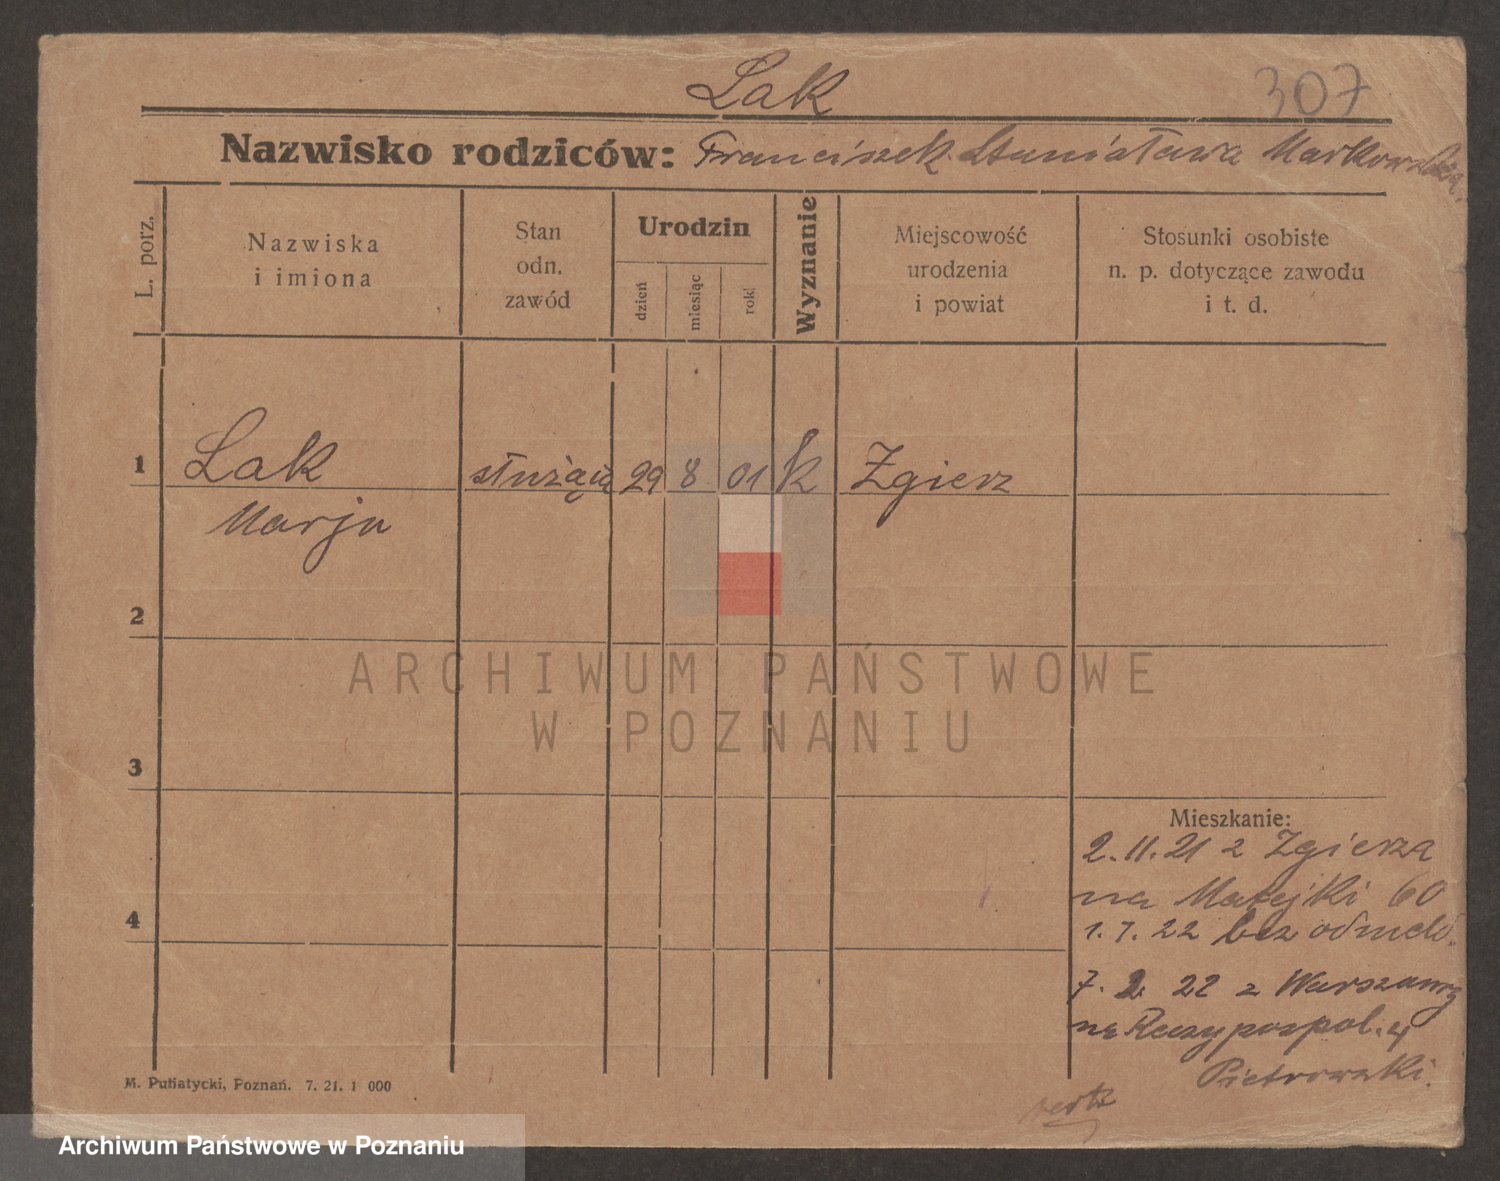 Lak
307
Nazwisko rodziców: Franciszek Stanisława Markowska
L. porz.
Nazwiska
i imiona
Stan
odn.
zawód
Urodzin
dzień
miesiąc
rok
Wyznanie
Miejscowość
urodzenia
i powiat
Stosunki osobiste
n. p. dotyczące zawodu
i t. d.
1
Lak
służąca
29
8
01
k
Zgierz
Marja
2
ARCHIWUM PAŃSTWOWE
W POZNANIU
3
Mieszkanie:
2.11.21 z Zgierza
na Matejki 60
4
1.7.22 bez odmeld.
7. 2. 22 z Warszawy
na Rzeczypospol. 4
Pietrowski.
M. Putiatycki, Poznań. 7. 21. 1 000
Archiwum Państwowe w Poznaniu